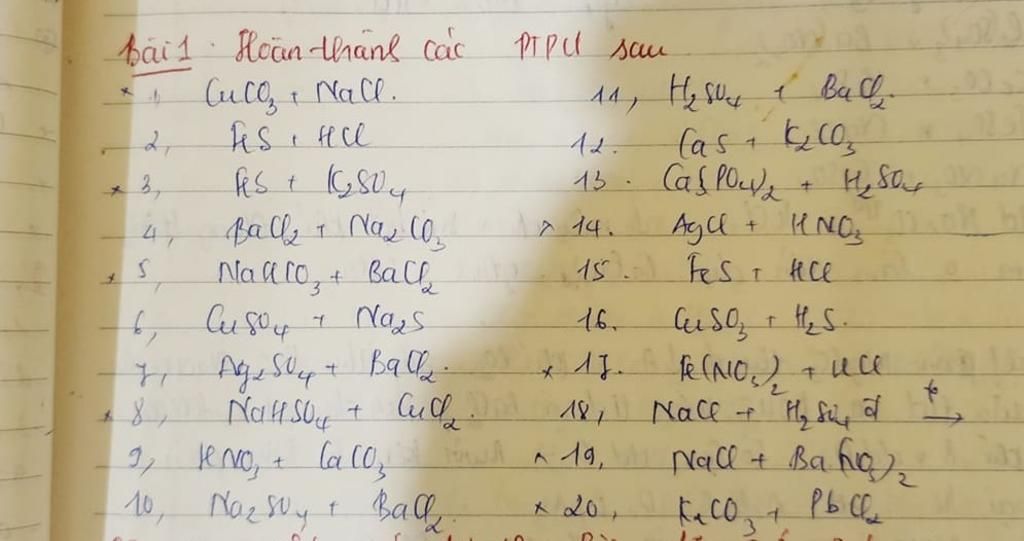 Bài 1. Hoàn thành các PTPU sau
* 1 CuCO3 + NaCl.
2, FeS + HCl
* 3, FeS + K2SO4
4, BaCl2 + Na2CO3
* 5, NaHCO3 + BaCl2
6, CuSO4 + Na2S
7, Ag2SO4 + BaCl2.
* 8, NaHSO4 + CuCl2.
9, HNO3 + CaCO3
10, Na2SO4 + BaCl2.
11, H2SO4 + BaCl2.
12. CaS + K2CO3
13. Ca3(PO4)2 + H2SO4
* 14. AgCl + HNO3
15. FeS + HCl
16. CuSO3 + H2S.
* 17. Fe(NO3)2 + HCl
18, NaCl + H2SO4 đ t →
* 19, NaCl + Ba(NO3)2
* 20, K2CO3 + PbCl2